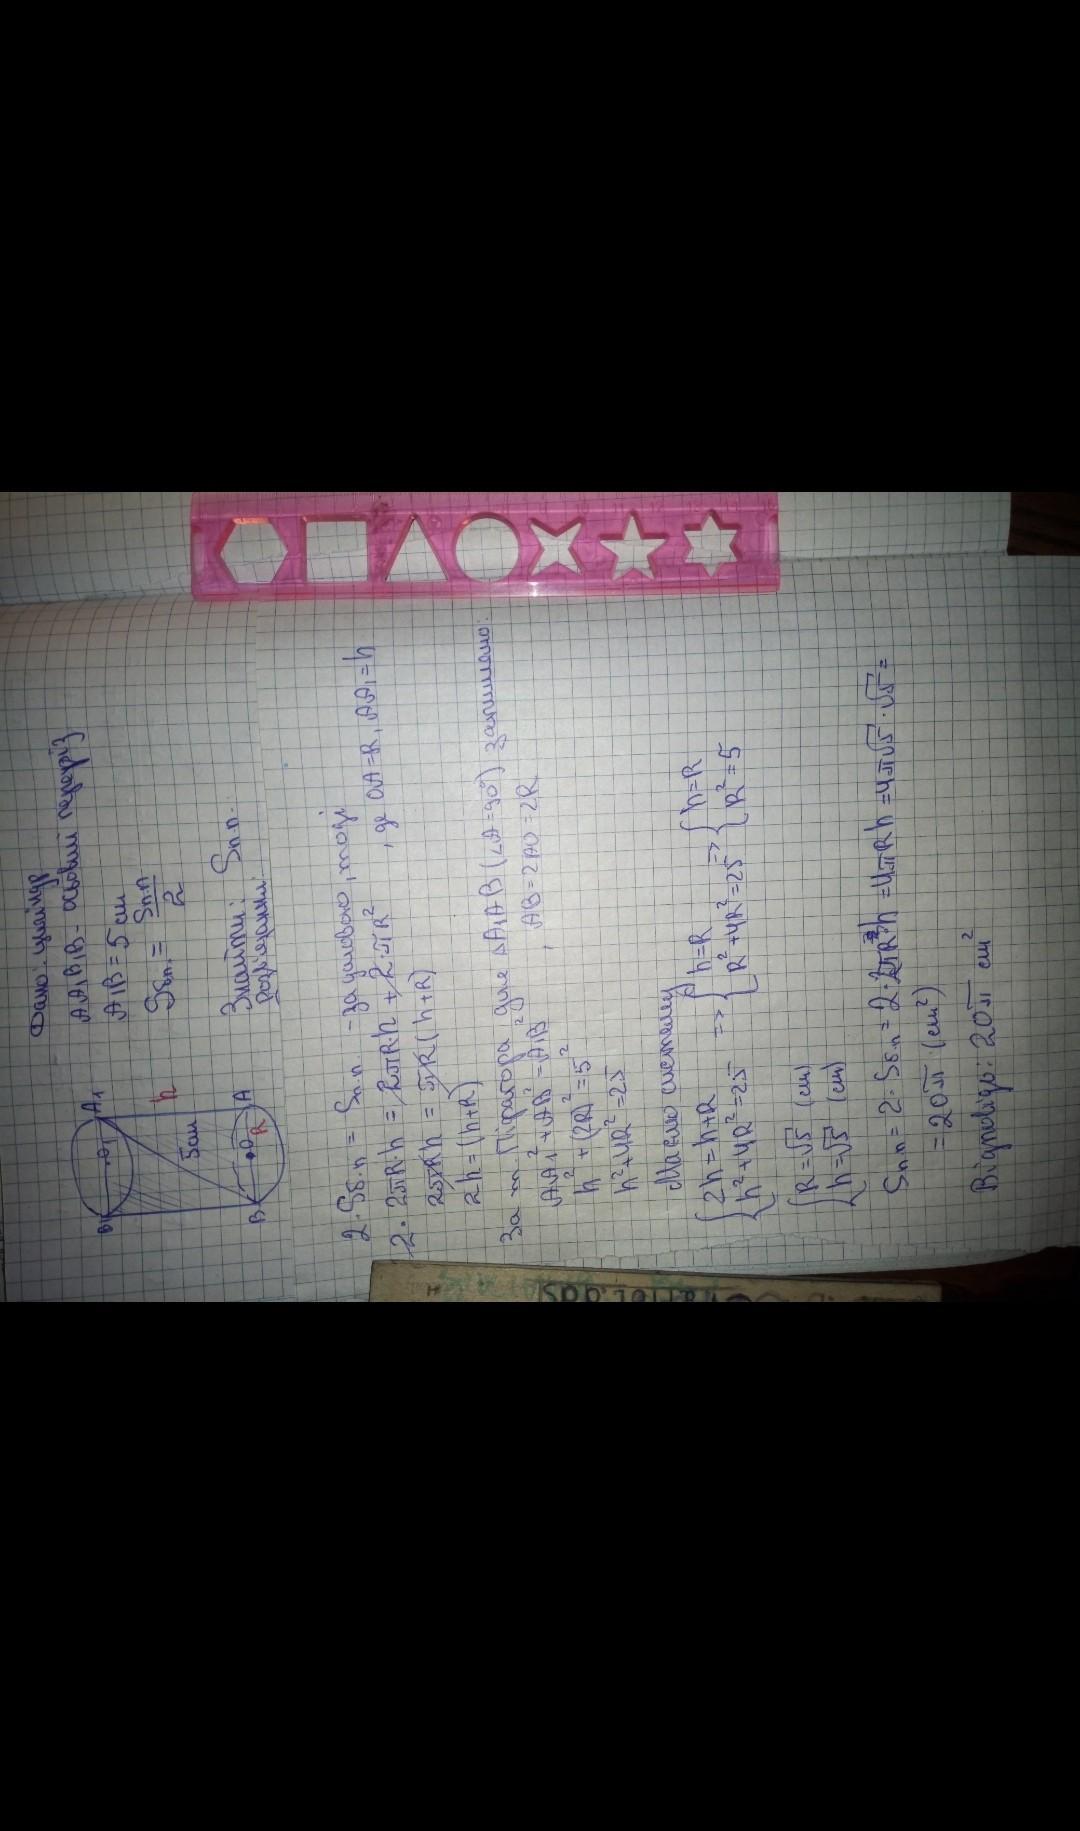 Дано: циліндр
AA₁B₁B - осьовий переріз
A₁B = 5 см
Sб.п. = Sп.п / 2
Знайти: Sп.п.
Розв'язання:
B₁ O₁ A₁
h
5 см
B O A
R
2·Sб.п = Sп.п - за умовою, тоді
2·2πR·h = 2πR·h + 2·πR², де OA=R, AA₁=h
2πRh = πR(h+R)
2h = (h+R)
За т. Піфагора для ΔA₁AB (∠A=90°) запишемо:
AA₁² + AB² = A₁B², AB = 2AO = 2R
h² + (2R)² = 5²
h² + 4R² = 25
Маємо систему
{ 2h = h+R => { h=R => { h=R
h² + 4R² = 25 R² + 4R² = 25 R² = 5
{ R=√5 (см)
h=√5 (см)
Sп.п = 2·Sб.п = 2·2πRh = 4πRh = 4π√5·√5 =
= 20π (см²)
Відповідь: 20π см²